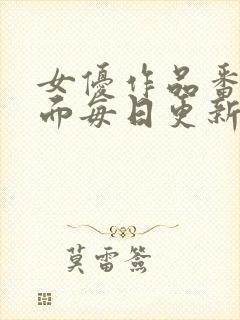 女優作品番
而每日更新
莫雷簽